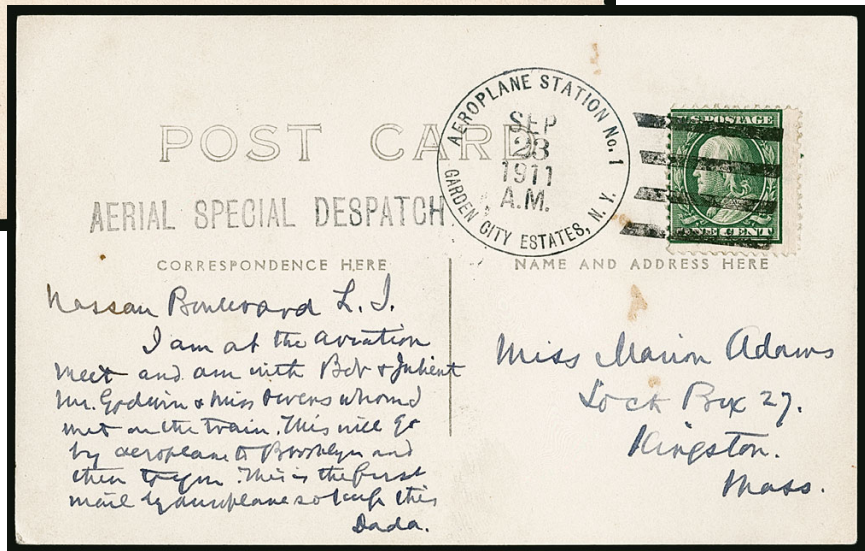 POST CARD
AERIAL SPECIAL DESPATCH
AEROPLANE STATION No. 1
SEP
23
1911
A.M.
GARDEN CITY ESTATES, N.Y.
U.S. POSTAGE
ONE CENT
CORRESPONDENCE HERE
NAME AND ADDRESS HERE
Nassau Boulevard L. I.
I am at the aviation
meet and am with Bob &
Mr. Godwin & Miss Owens whom I
met on the train. This will go
by aeroplane to Brooklyn and
then to you. This is the first
mail by aeroplane so keep this
Dada.
Miss Marion Adams
Lock Box 27.
Kingston.
Mass.